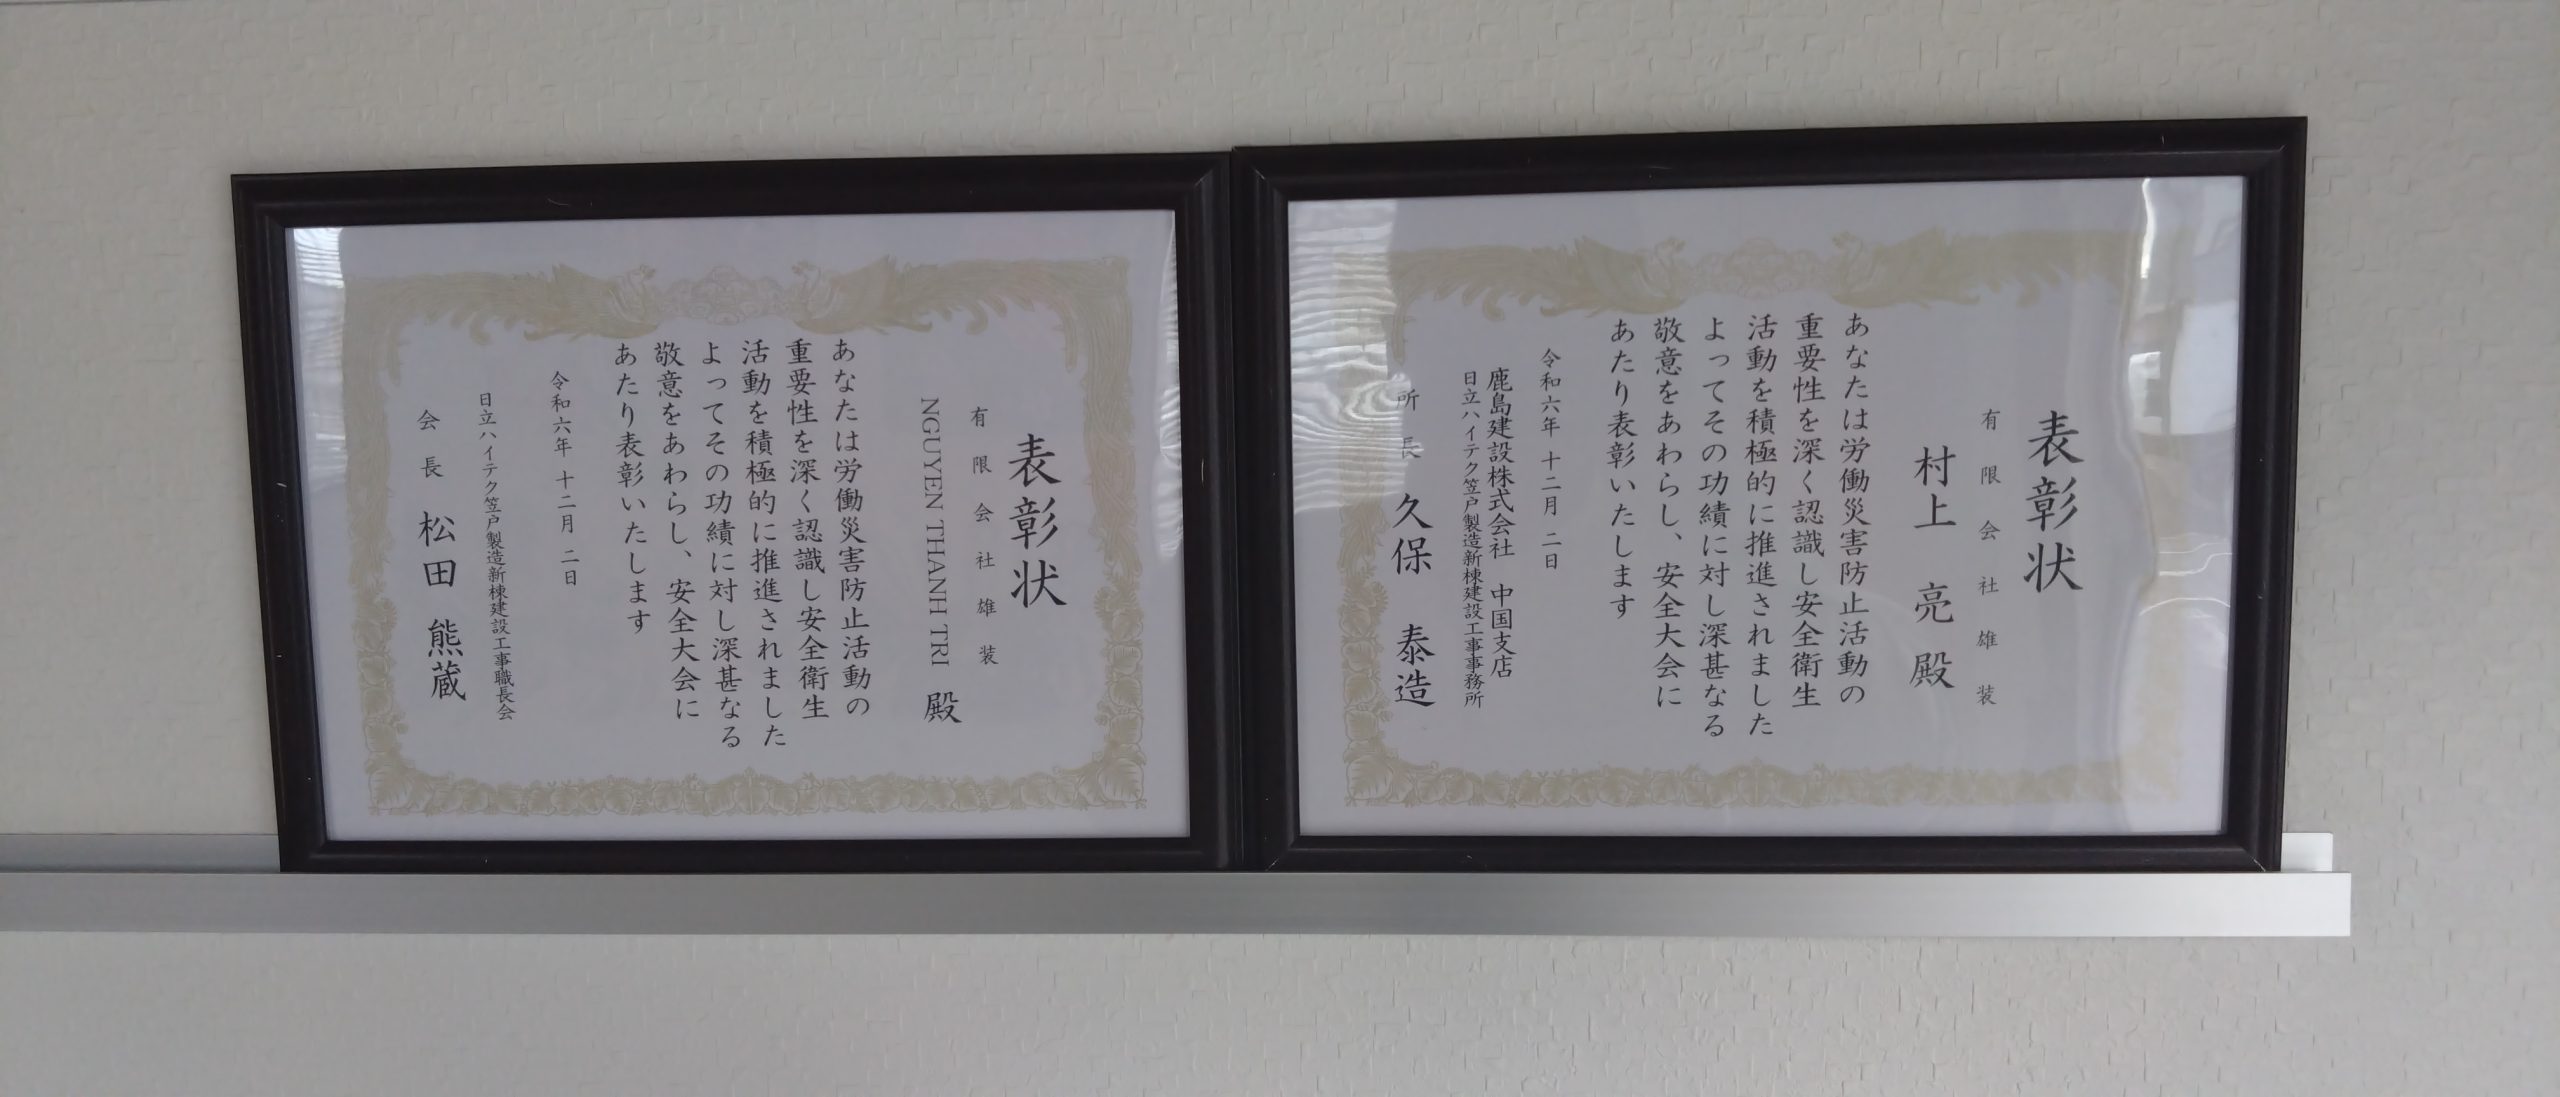 表彰状
有限会社雄装
村上 亮 殿
あなたは労働災害防止活動の
重要性を深く認識し安全衛生
活動を積極的に推進されました
よってその功績に対し深甚なる
敬意をあわらし、安全大会に
あたり表彰いたします
令和六年 十二月 二日
鹿島建設株式会社 中国支店
日立ハイテク笠戸製造新棟建設工事事務所
所長 久保 泰造
表彰状
有限会社雄装
NGUYEN THANH TRI 殿
あなたは労働災害防止活動の
重要性を深く認識し安全衛生
活動を積極的に推進されました
よってその功績に対し深甚なる
敬意をあわらし、安全大会に
あたり表彰いたします
令和六年 十二月 二日
日立ハイテク笠戸製造新棟建設工事職長会
会長 松田 熊蔵